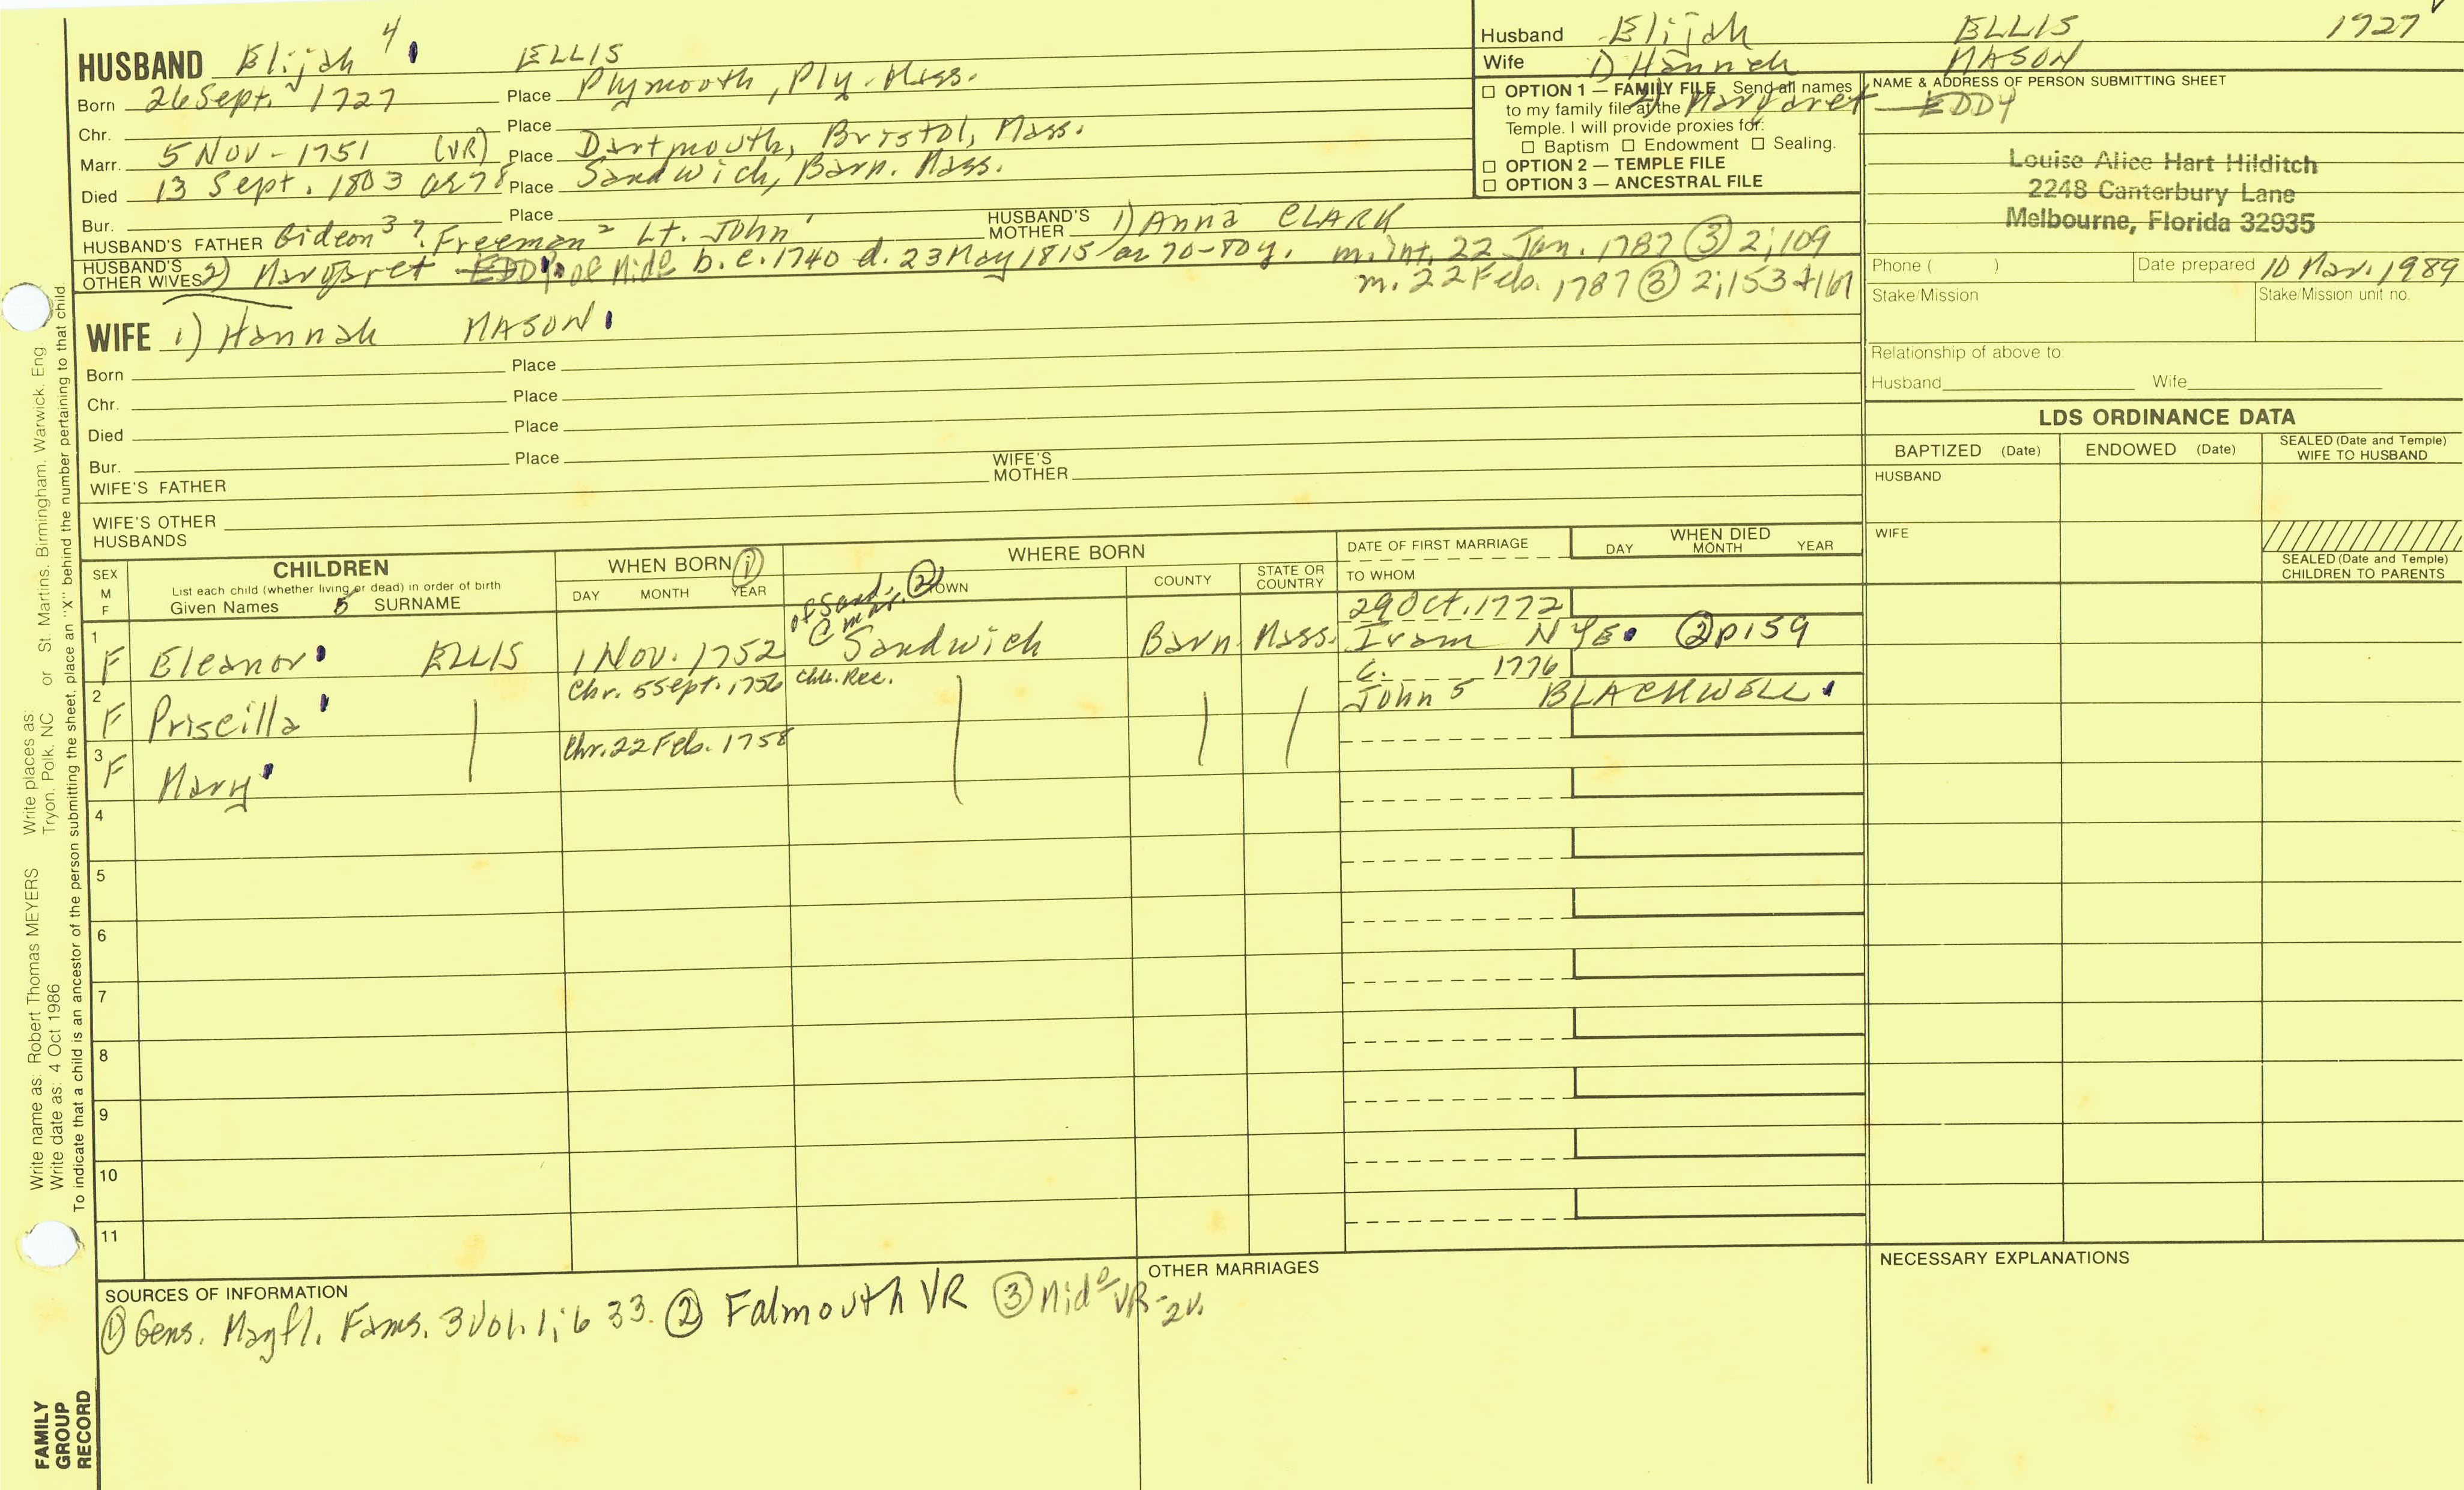 HUSBAND Elijah 4 ELLIS
Born 26 Sept. 1727 Place Plymouth, Ply. Mass.
Chr. Place
Marr. 5 Nov - 1751 (VR) Place Dartmouth, Bristol, Mass.
Died 13 Sept. 1803 ae 78 Place Sandwich, Barn. Mass.
Bur. Place
HUSBAND'S FATHER Gideon 3 ?. Freeman 2 Lt. John 1 HUSBAND'S MOTHER 1) Anna CLARK
HUSBAND'S OTHER WIVES 2) Margaret EDDY of Midb b.c. 1740 d. 23 May 1815 ae 70-80y. m. Int. 22 Jan. 1787 (3) 2;109
m. 22 Feb. 1787 (3) 2;153 + 161
WIFE 1) Hannah MASON
Born Place
Chr. Place
Died Place
Bur. Place
WIFE'S FATHER WIFE'S MOTHER
WIFE'S OTHER HUSBANDS
Husband Elijah ELLIS 1727
Wife 1) Hannah MASON
2) Margaret EDDY
☐ OPTION 1 — FAMILY FILE Send all names
to my family file at the
Temple. I will provide proxies for:
☐ Baptism ☐ Endowment ☐ Sealing.
☐ OPTION 2 — TEMPLE FILE
☐ OPTION 3 — ANCESTRAL FILE
NAME & ADDRESS OF PERSON SUBMITTING SHEET
Louise Alice Hart Hilditch
2248 Canterbury Lane
Melbourne, Florida 32935
Phone ( ) Date prepared 10 Mar. 1989
Stake/Mission Stake/Mission unit no.
Relationship of above to
Husband Wife
LDS ORDINANCE DATA
BAPTIZED (Date) ENDOWED (Date) SEALED (Date and Temple) WIFE TO HUSBAND
HUSBAND
WIFE
SEALED (Date and Temple) CHILDREN TO PARENTS
SEX M F
CHILDREN
List each child (whether living or dead) in order of birth
Given Names 5 SURNAME
WHEN BORN (1)
DAY MONTH YEAR
WHERE BORN
of Sand. (2) @ mar. TOWN COUNTY STATE OR COUNTRY
DATE OF FIRST MARRIAGE
TO WHOM
WHEN DIED
DAY MONTH YEAR
1 F Eleanor ELLIS 1 Nov. 1752 Sandwich Barn. Mass. 29 Oct. 1772 Iram NYE (2) p159
2 F Priscilla Chr. 5 Sept. 1756 Chh. Rec. c. 1776 John 5 BLACKWELL
3 F Mary Chr. 22 Feb. 1758
4
5
6
7
8
9
10
11
SOURCES OF INFORMATION
(1) Gens. Mayfl. Fams. 3 Vol. 1; 633. (2) Falmouth VR (3) Midb VR-2v.
OTHER MARRIAGES
NECESSARY EXPLANATIONS
Write name as: Robert Thomas MEYERS Write places as: Tryon, Polk, NC or St. Martins, Birmingham, Warwick, Eng.
Write date as: 4 Oct 1986
To indicate that a child is an ancestor of the person submitting the sheet, place an "X" behind the number pertaining to that child.
FAMILY
GROUP
RECORD